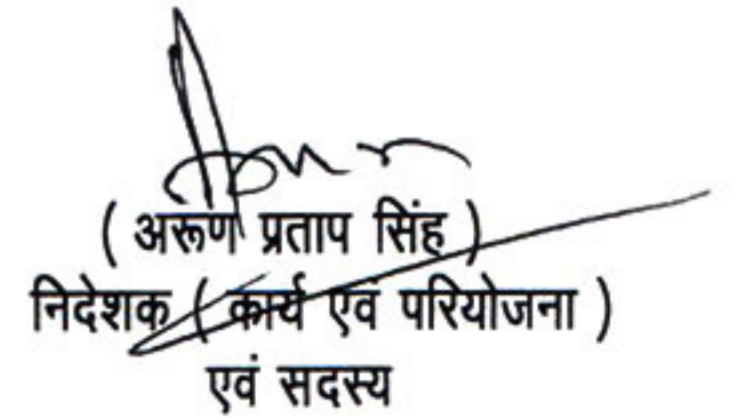 ( अरूण प्रताप सिंह )
निदेशक ( कार्य एवं परियोजना )
एवं सदस्य